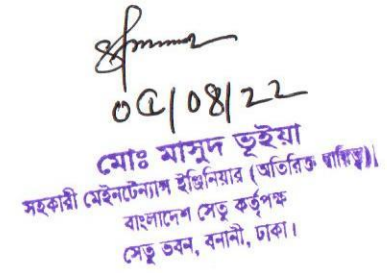 ০৫/08/22
মোঃ মাসুদ ভূইয়া
সহকারী মেইনটেন্যান্স ইঞ্জিনিয়ার (অতিরিক্ত দায়িত্ব)।
বাংলাদেশ সেতু কর্তৃপক্ষ
সেতু ভবন, বনানী, ঢাকা।